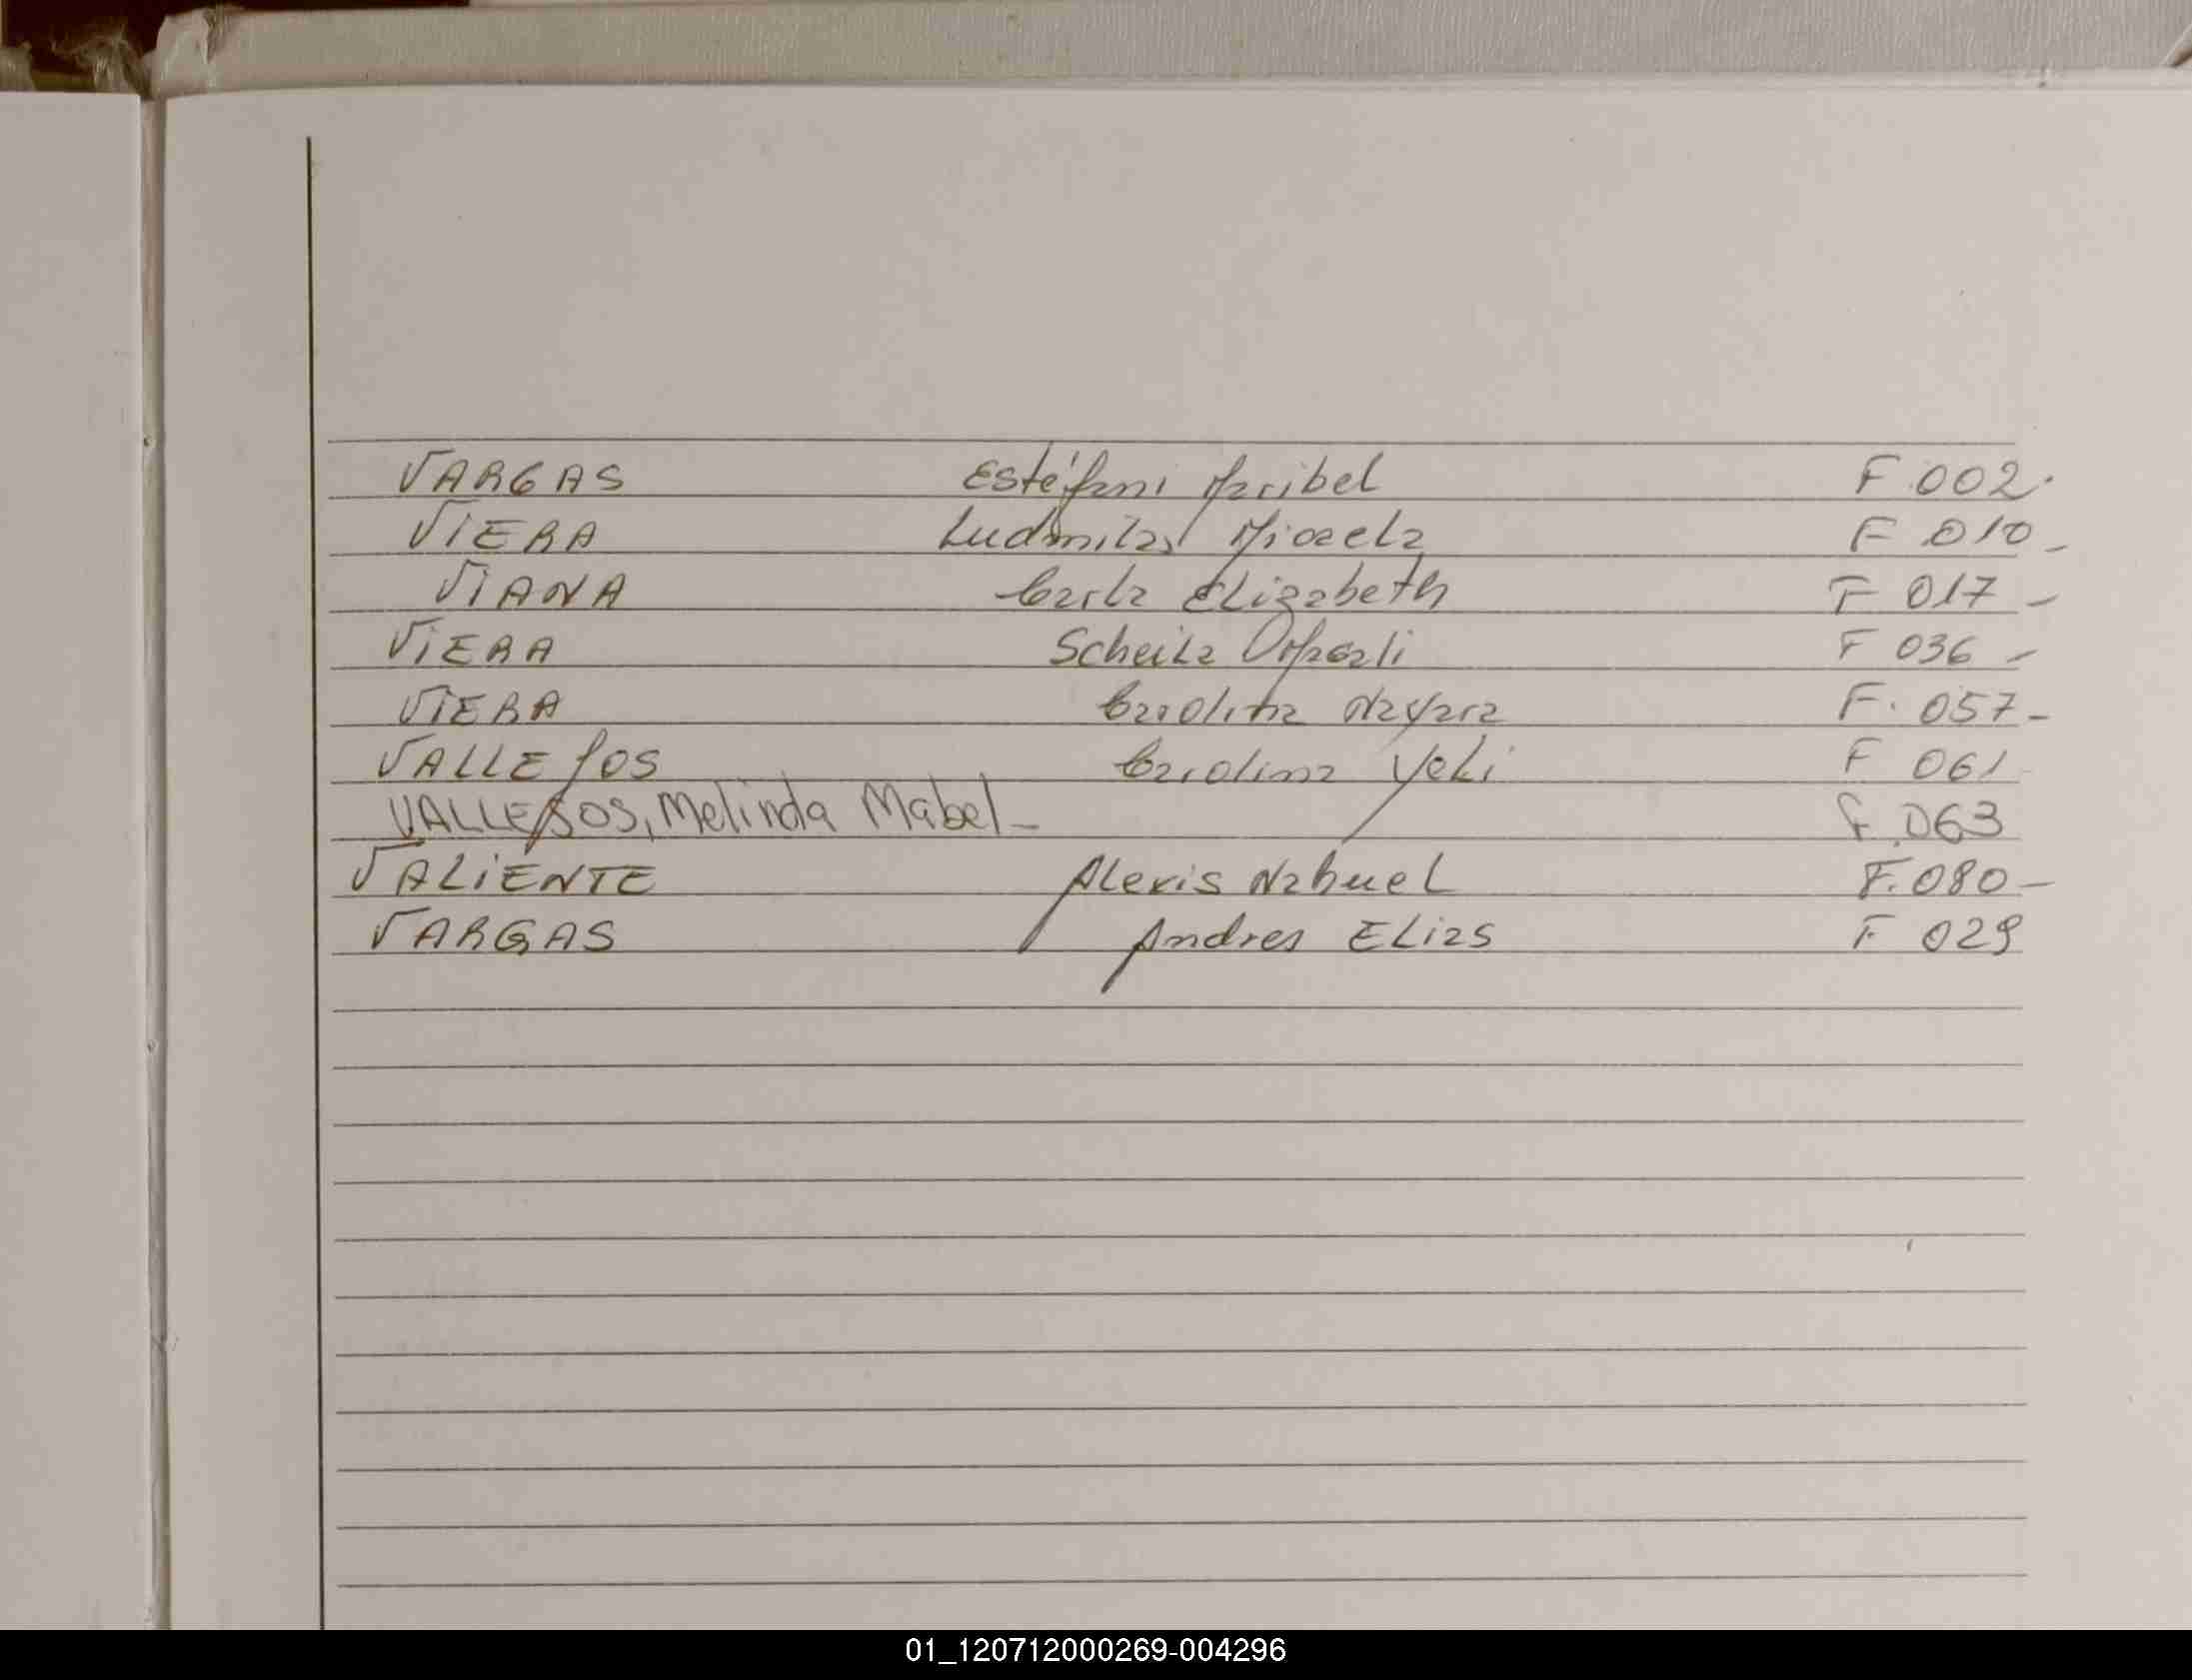 VARGAS Estéfani Maribel F 002.
VIERA Ludmila Micaela F 010_
VIANA Carla Elizabeth F 017 -
VIERA Scheila F 036 -
VIERA Carolina Nayara F. 057-
VALLEJOS Carolina Yeki F 061
VALLEJOS, Melinda Mabel - F 063
VALIENTE Alexis Nahuel F. 080-
VARGAS Andres Elias F 029
01_120712000269-004296